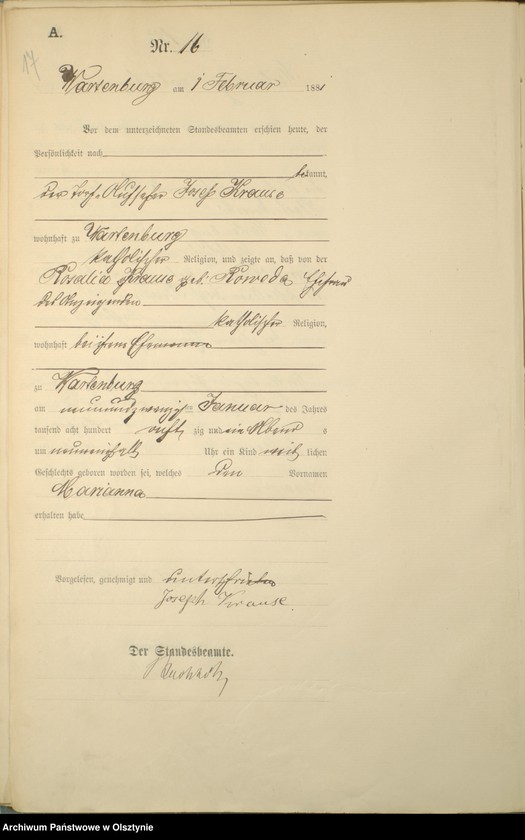 A.
17
Nr. 16
Wartenburg am 1 Februar 1881
Vor dem unterzeichneten Standesbeamten erschien heute, der
Persönlichkeit nach
bekannt,
der Torf-Aufseher Josef Krause
wohnhaft zu Wartenburg
katholischer Religion, und zeigte an, daß von der
Rosalia Krause geb. Kowoda Ehefrau
des Anzeigenden
katholischer Religion,
wohnhaft bei ihrem Ehemanne
zu Wartenburg
am neunundzwanzigsten Januar des Jahres
tausend acht hundert acht zig und ein Abend s
um neuneinhalb Uhr ein Kind weib lichen
Geschlechts geboren worden sei, welches den Vornamen
Marianna
erhalten habe
Vorgelesen, genehmigt und unterschrieben
Joseph Krause.
Der Standesbeamte.
Archiwum Państwowe w Olsztynie